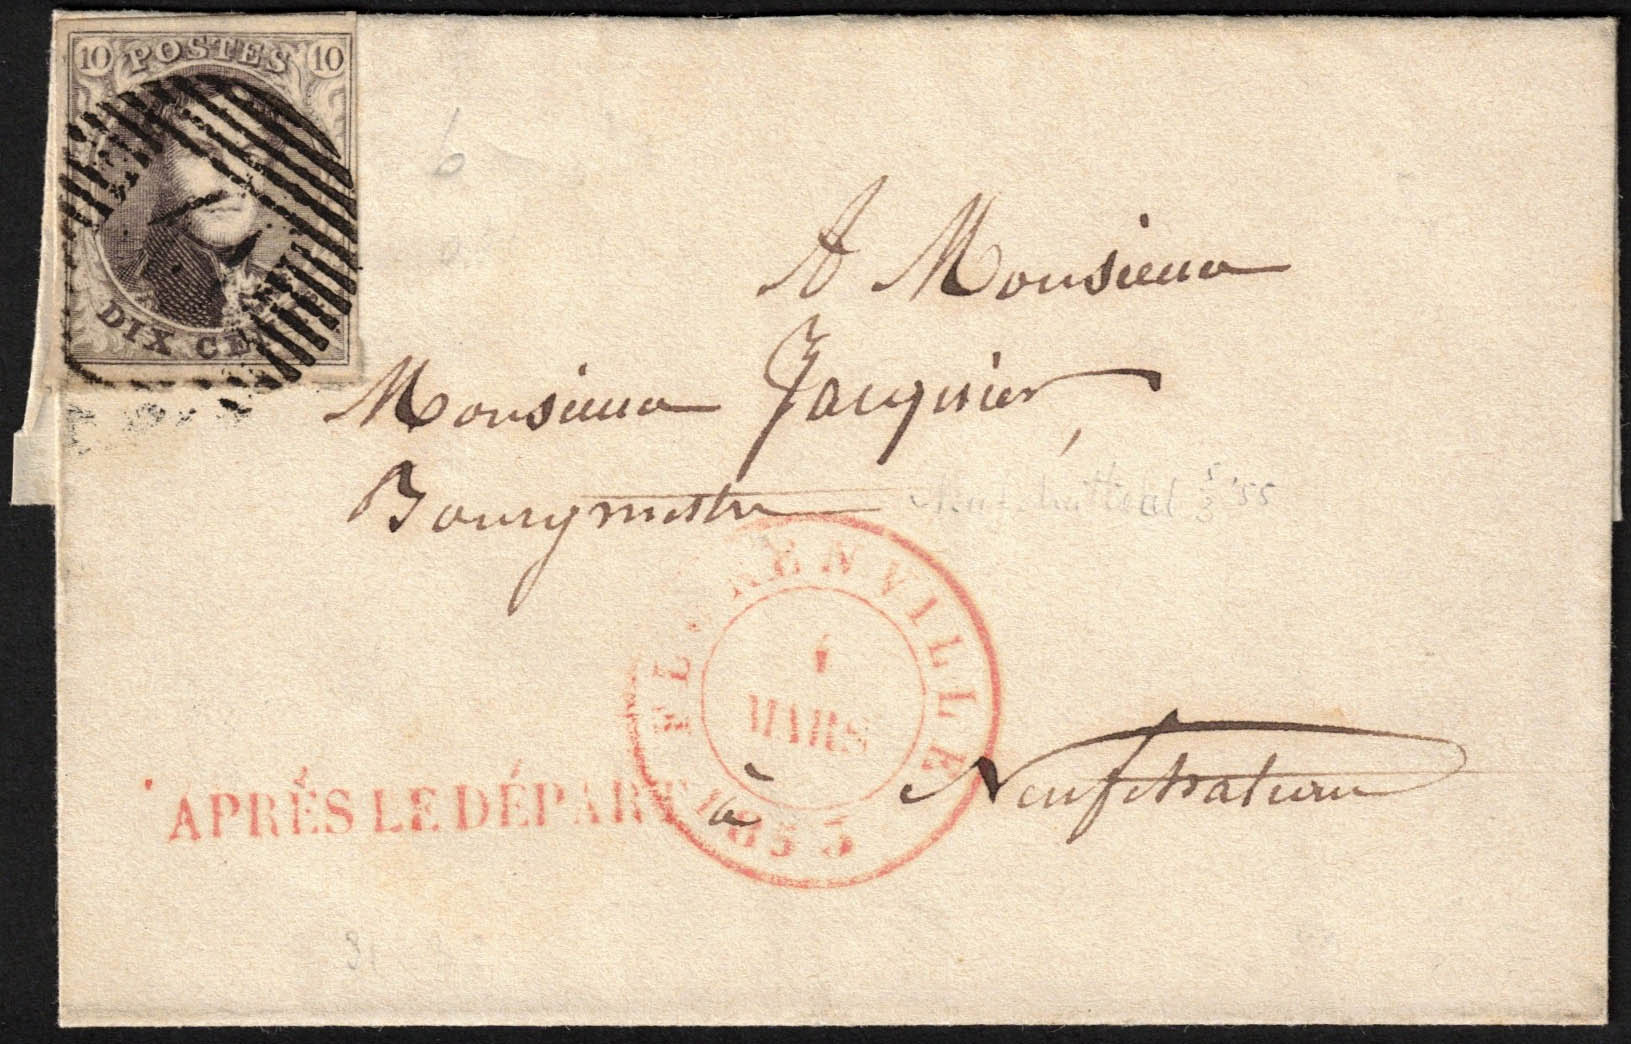 10 POSTES 10
DIX CE
6
A Monsieur
Monsieur Jacquier
Bourgmestre
5/3 '55
FLORENVILLE
MARS
1855
APRÈS LE DÉPART
à Neufchateau